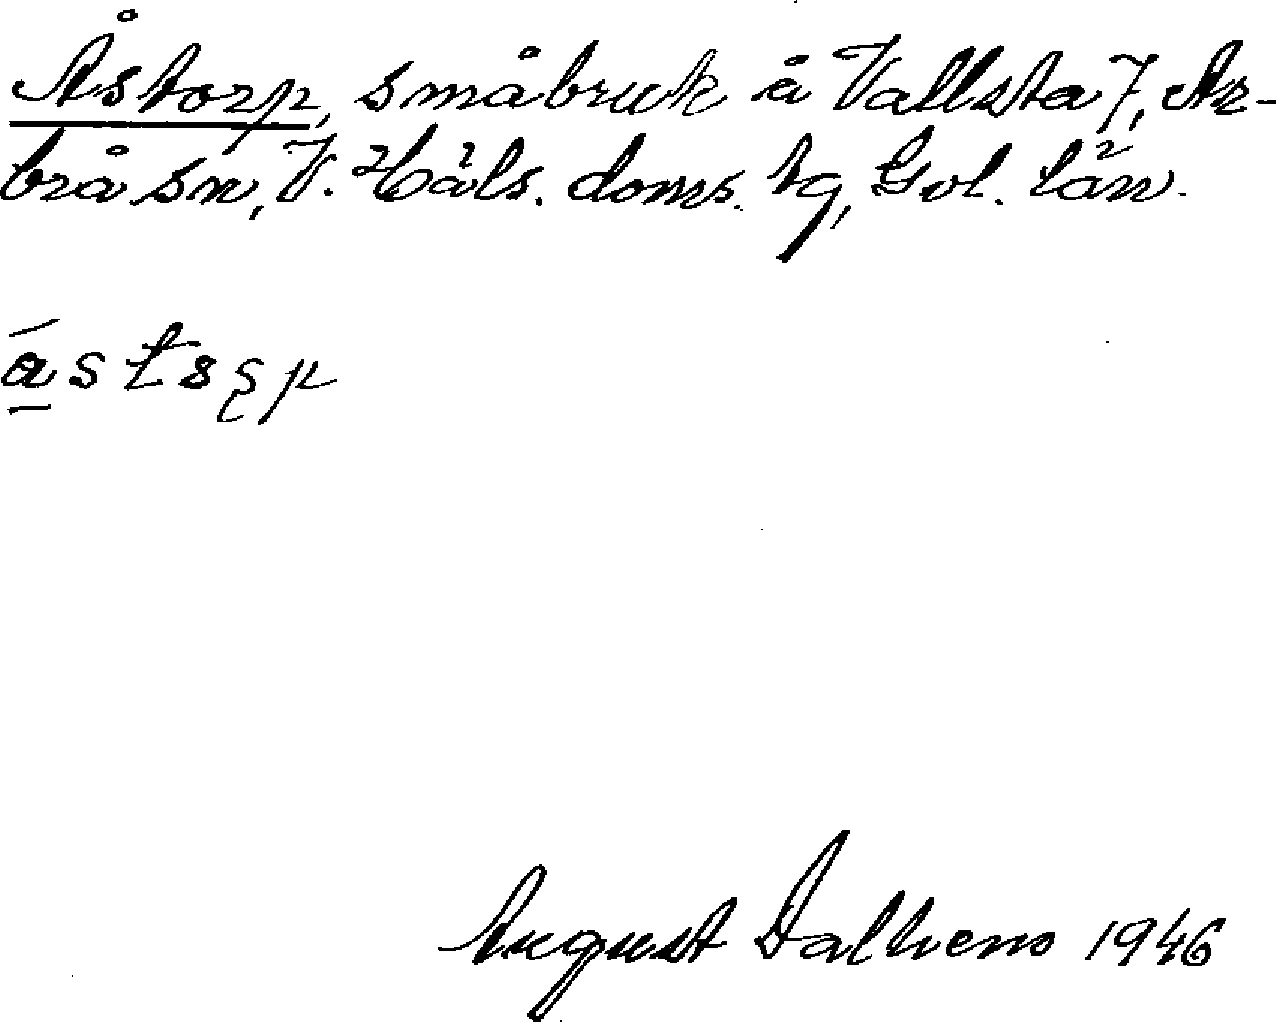 Åstorp, småbruk å Vallsta 7, Ar-
brå sn, V. Häls. doms. tg, Gvl. län.
August Dalhems 1946